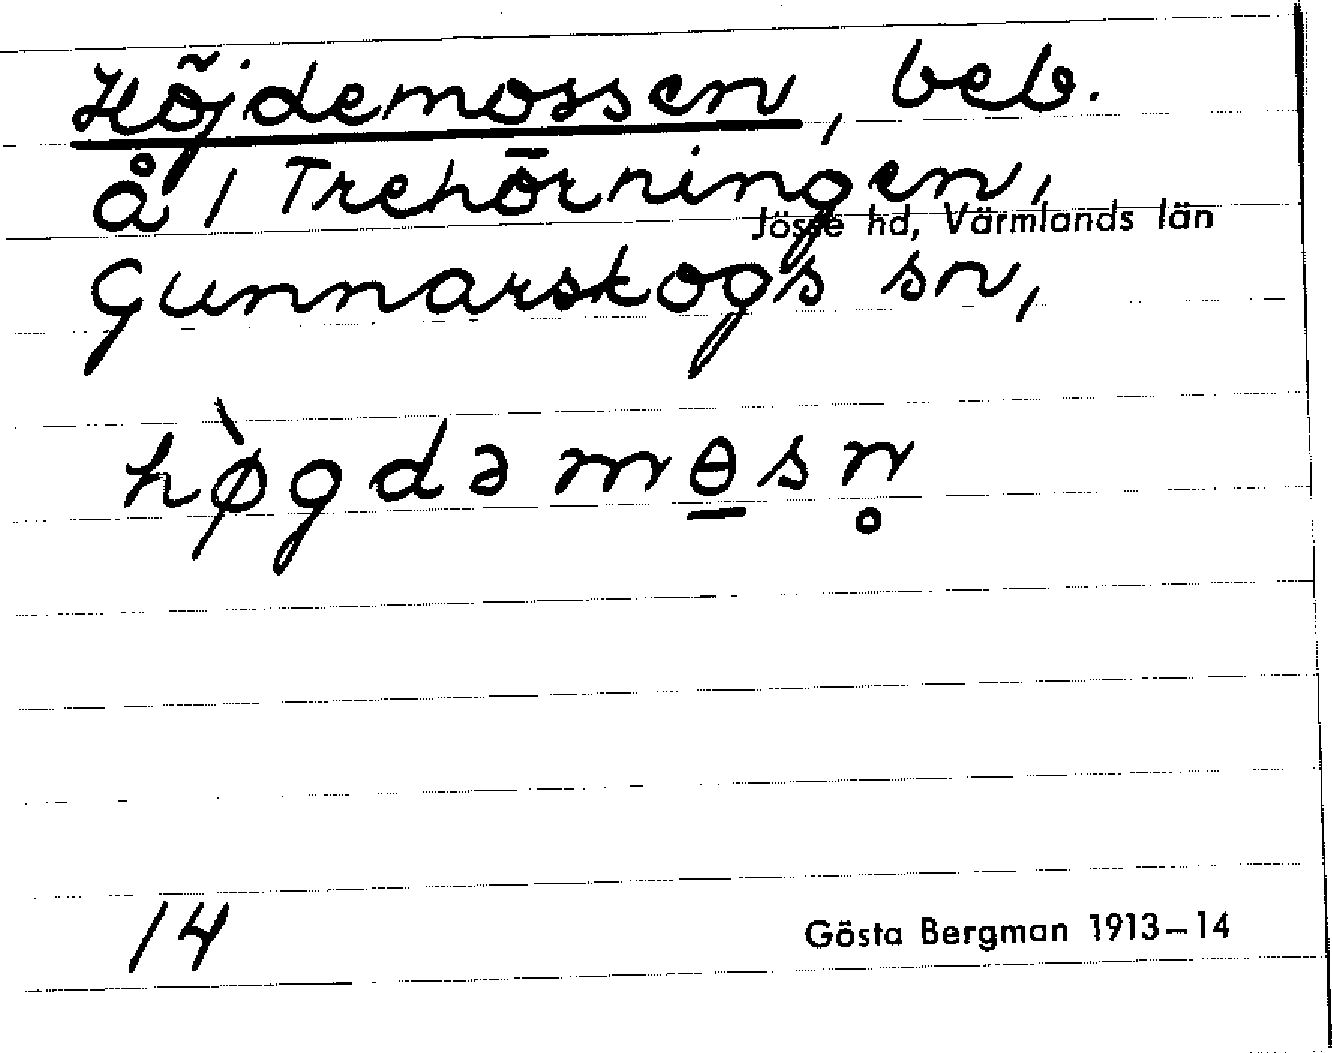 Höjdemossen, beb.
å 1 Trehörningen,
Jösse hd, Värmlands län
Gunnarskogs sn,
hø̀gdəmɵ̠sn̥
14
Gösta Bergman 1913–14